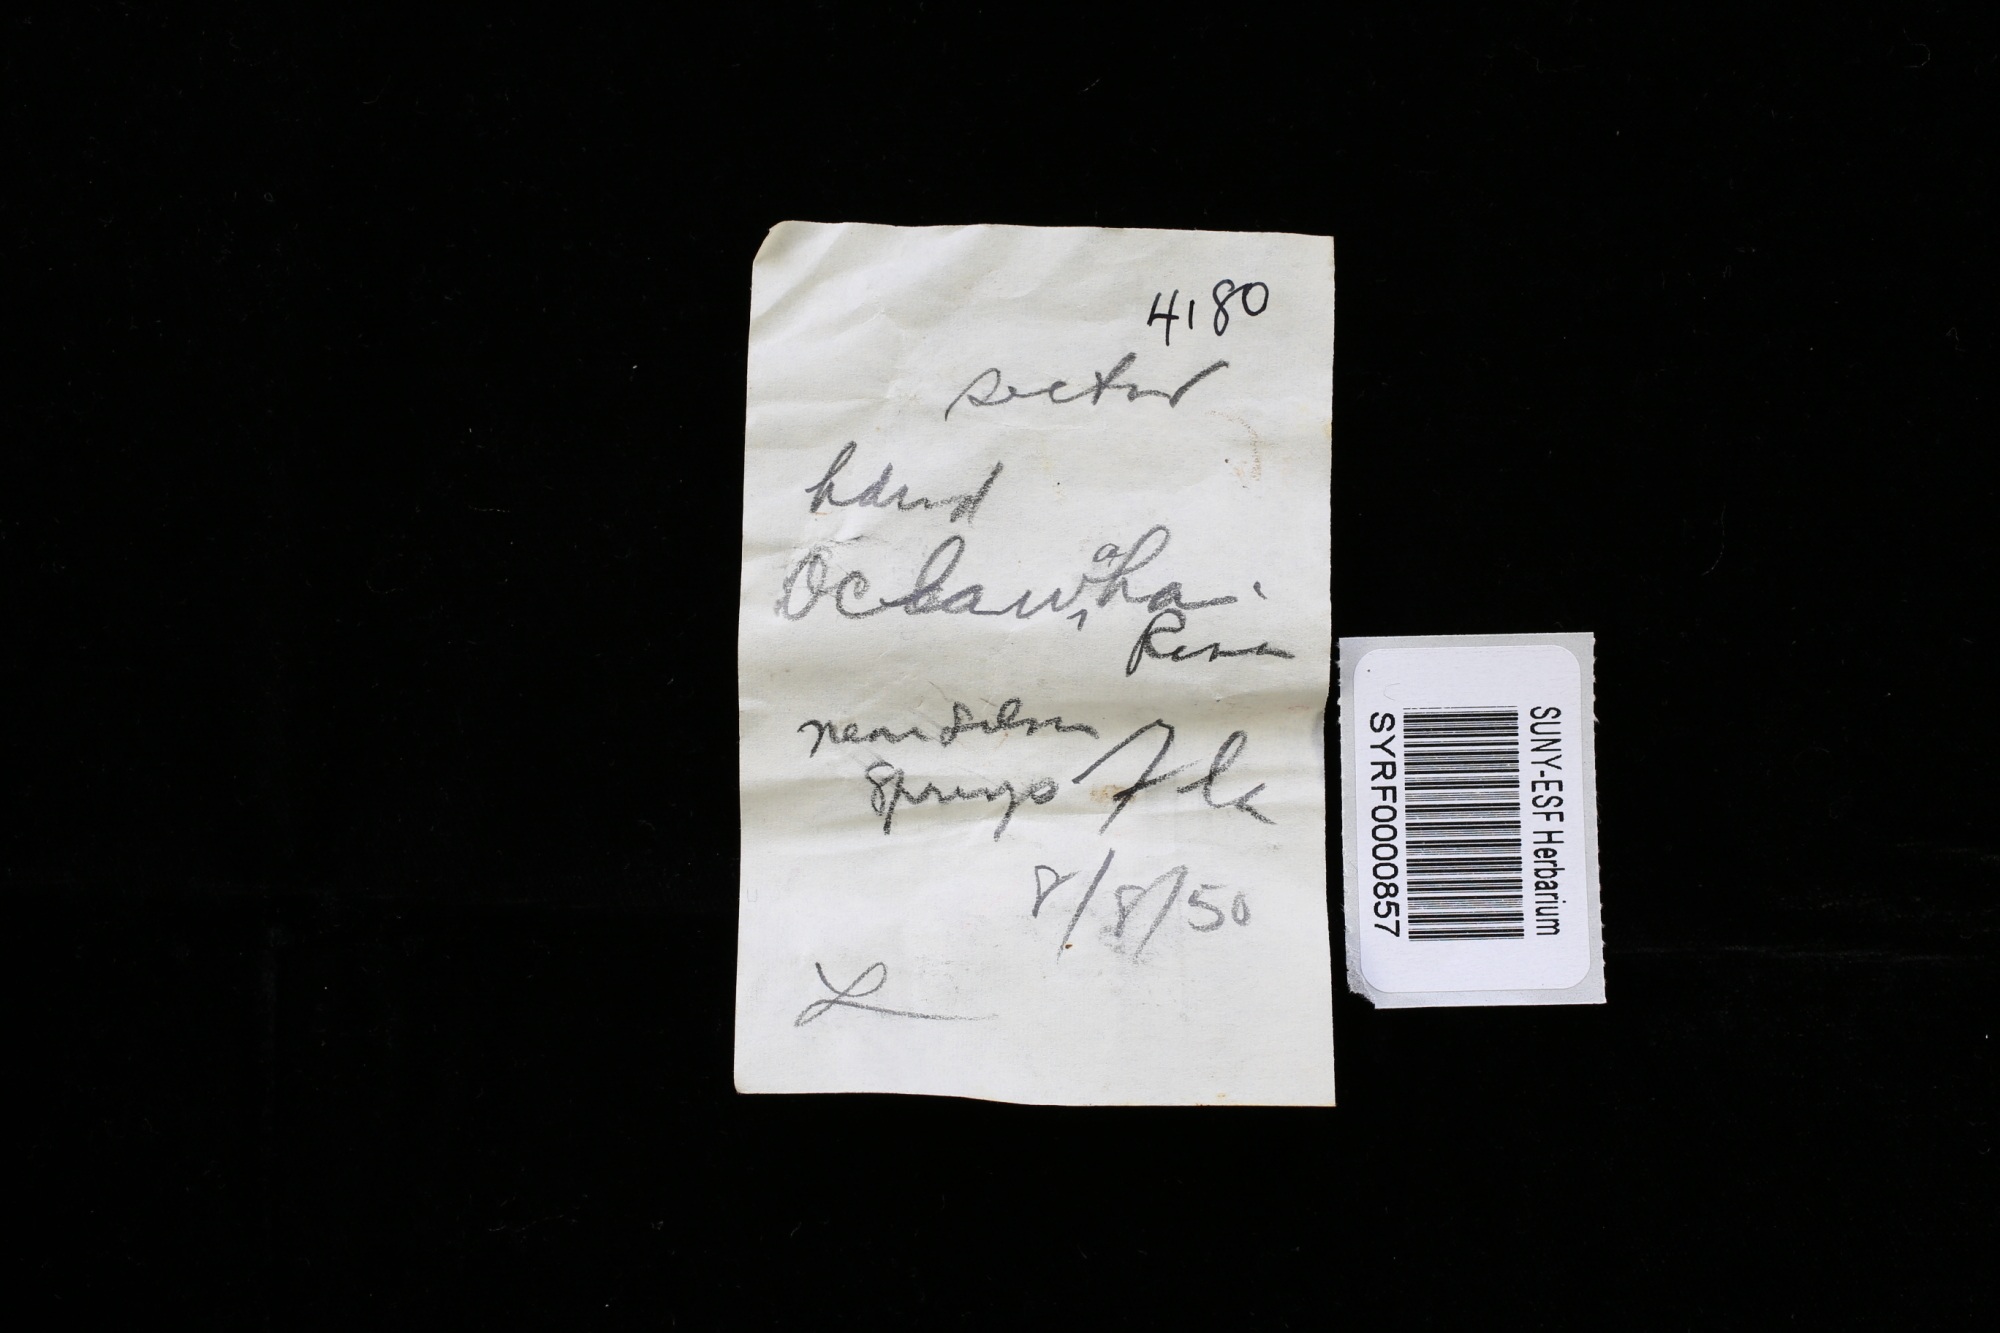 4180
sector
hard
Oclawaha
River
near Silver
Springs Fla
8/8/50
L
SUNY-ESF Herbarium
SYRF0000857